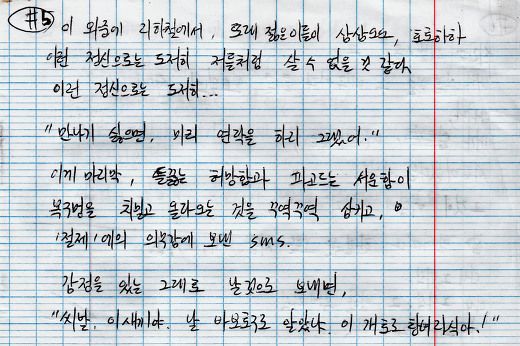 #5
이 와중에 지하철에서, 또래 젊은이들이 삼삼오오, 호호하하
이런 정신으로는 도저히 저들처럼 살 수 없을 것 같다
이런 정신으로는 도저히...
"만나기 싫으면, 미리 연락을 하지 그랬어."
이게 마지막, 들끓는 허망함과 파고드는 서운함이
목구멍을 치밀고 올라오는 것을 꾸역꾸역 삼키고,
'절제'에의 의무감에 보낸 sms.
감정을 있는 그대로 날것으로 보내면,
"씨발. 이새끼야. 날 바보토구로 알았냐. 이 개